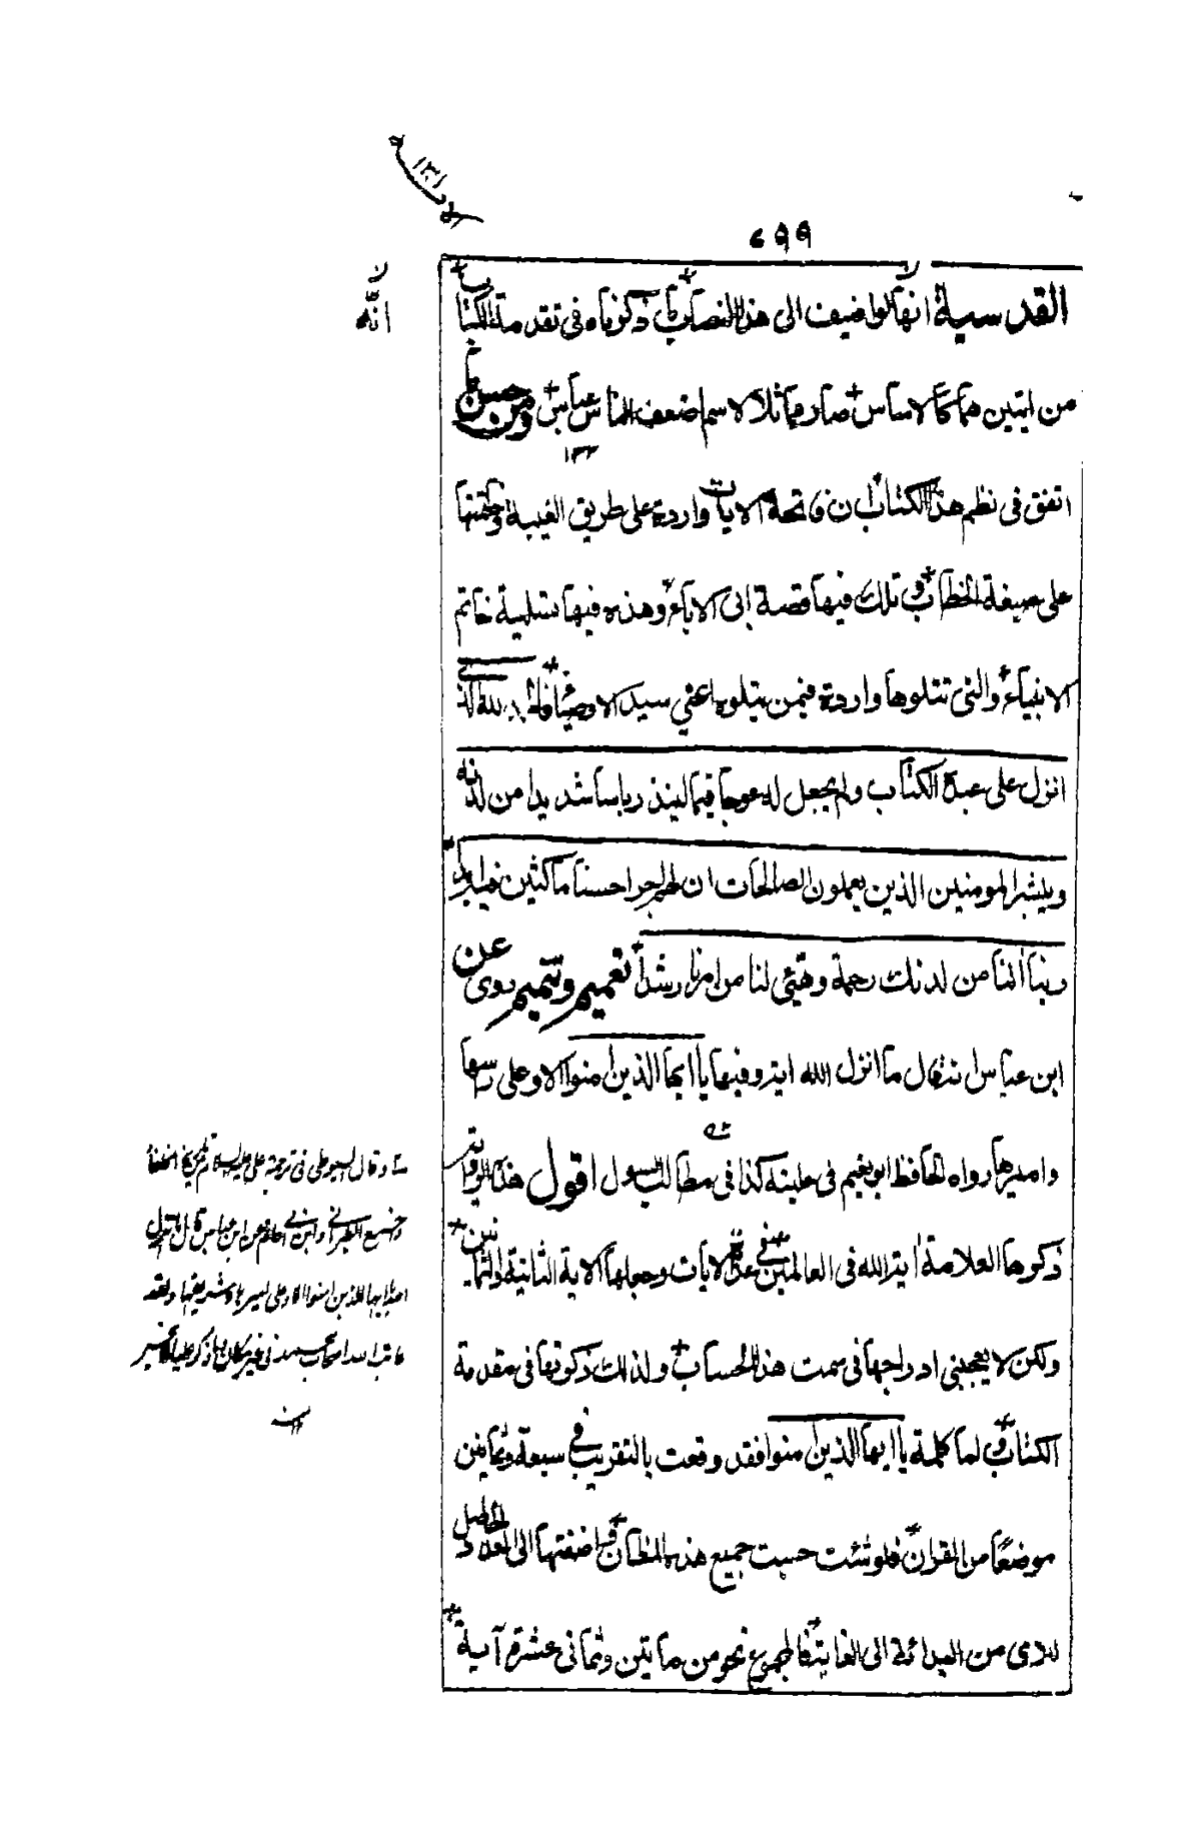 ٦٩٩
القدسية انها لو اضيف الى هذا النصاب ما ذكرناه في تقدمة الكتاب
من ايتين هما كالاساس صار مماثلا لاسم اضعف الناس عباس ومن حسن ما
١٣٣
اتفق في نظم هذا الكتاب ان فاتحة الايات واردة على طريق الغيبة وخاتمتها
على صيغة الخطاب وتلك فيها قصة إبى الاباء وهذه فيها تسلية خاتم
الانبياء والتى تتلوها واردة فيمن يتلوه اعني سيد الاوصياء فالحمد لله الذى
انزل على عبده الكتاب ولم يجعل له عوجا قيما لينذر باسا شديدا من لدنه
ويبشر المومنين الذين يعملون الصالحات ان لهم اجرا حسنا ماكثين فيه ابدا
ربنا آتنا من لدنك رحمة وهيئ لنا من امرنا رشدا تعميم وتتميم روى عن
ابن عباس انه قال ما انزل الله اية وفيها يا ايها الذين امنوا الا وعلى راسها
واميرها رواه الحافظ ابو نعيم فى حليته كذا فى مطالب السول اقول هذه الرواية
ذكرها العلامة اية الله فى العالمين في عدة الايات وجعلها الاية الثانية والثمانين
ولكن لا يعجبنى ادراجها فى سمت هذا الحساب ولذلك ذكرتها فى مقدمة
الكتاب ولما كلمة يا ايها الذين امنوا فقد وقعت بالتقريب في سبعة وثمانين
موضعا من القران فلو شئت حسبت جميع هذه المظان واضفتها الى العدد الحاصل
لدى من البدائة الى الغاية فالمجموع نحو من مايتين وثمانى عشرة آية
لا
انَّه
وقال السيوطى فى ترجمة على عليه السلام
واخرج الطبراني وابن ابي حاتم عن ابن عباس قال ما نزل
الله يا ايها الذين امنوا الا وعلى اميرها وشريفها ولقد
عاتب الله اصحاب محمد فى غير مكان وما ذكر عليا الا بخير